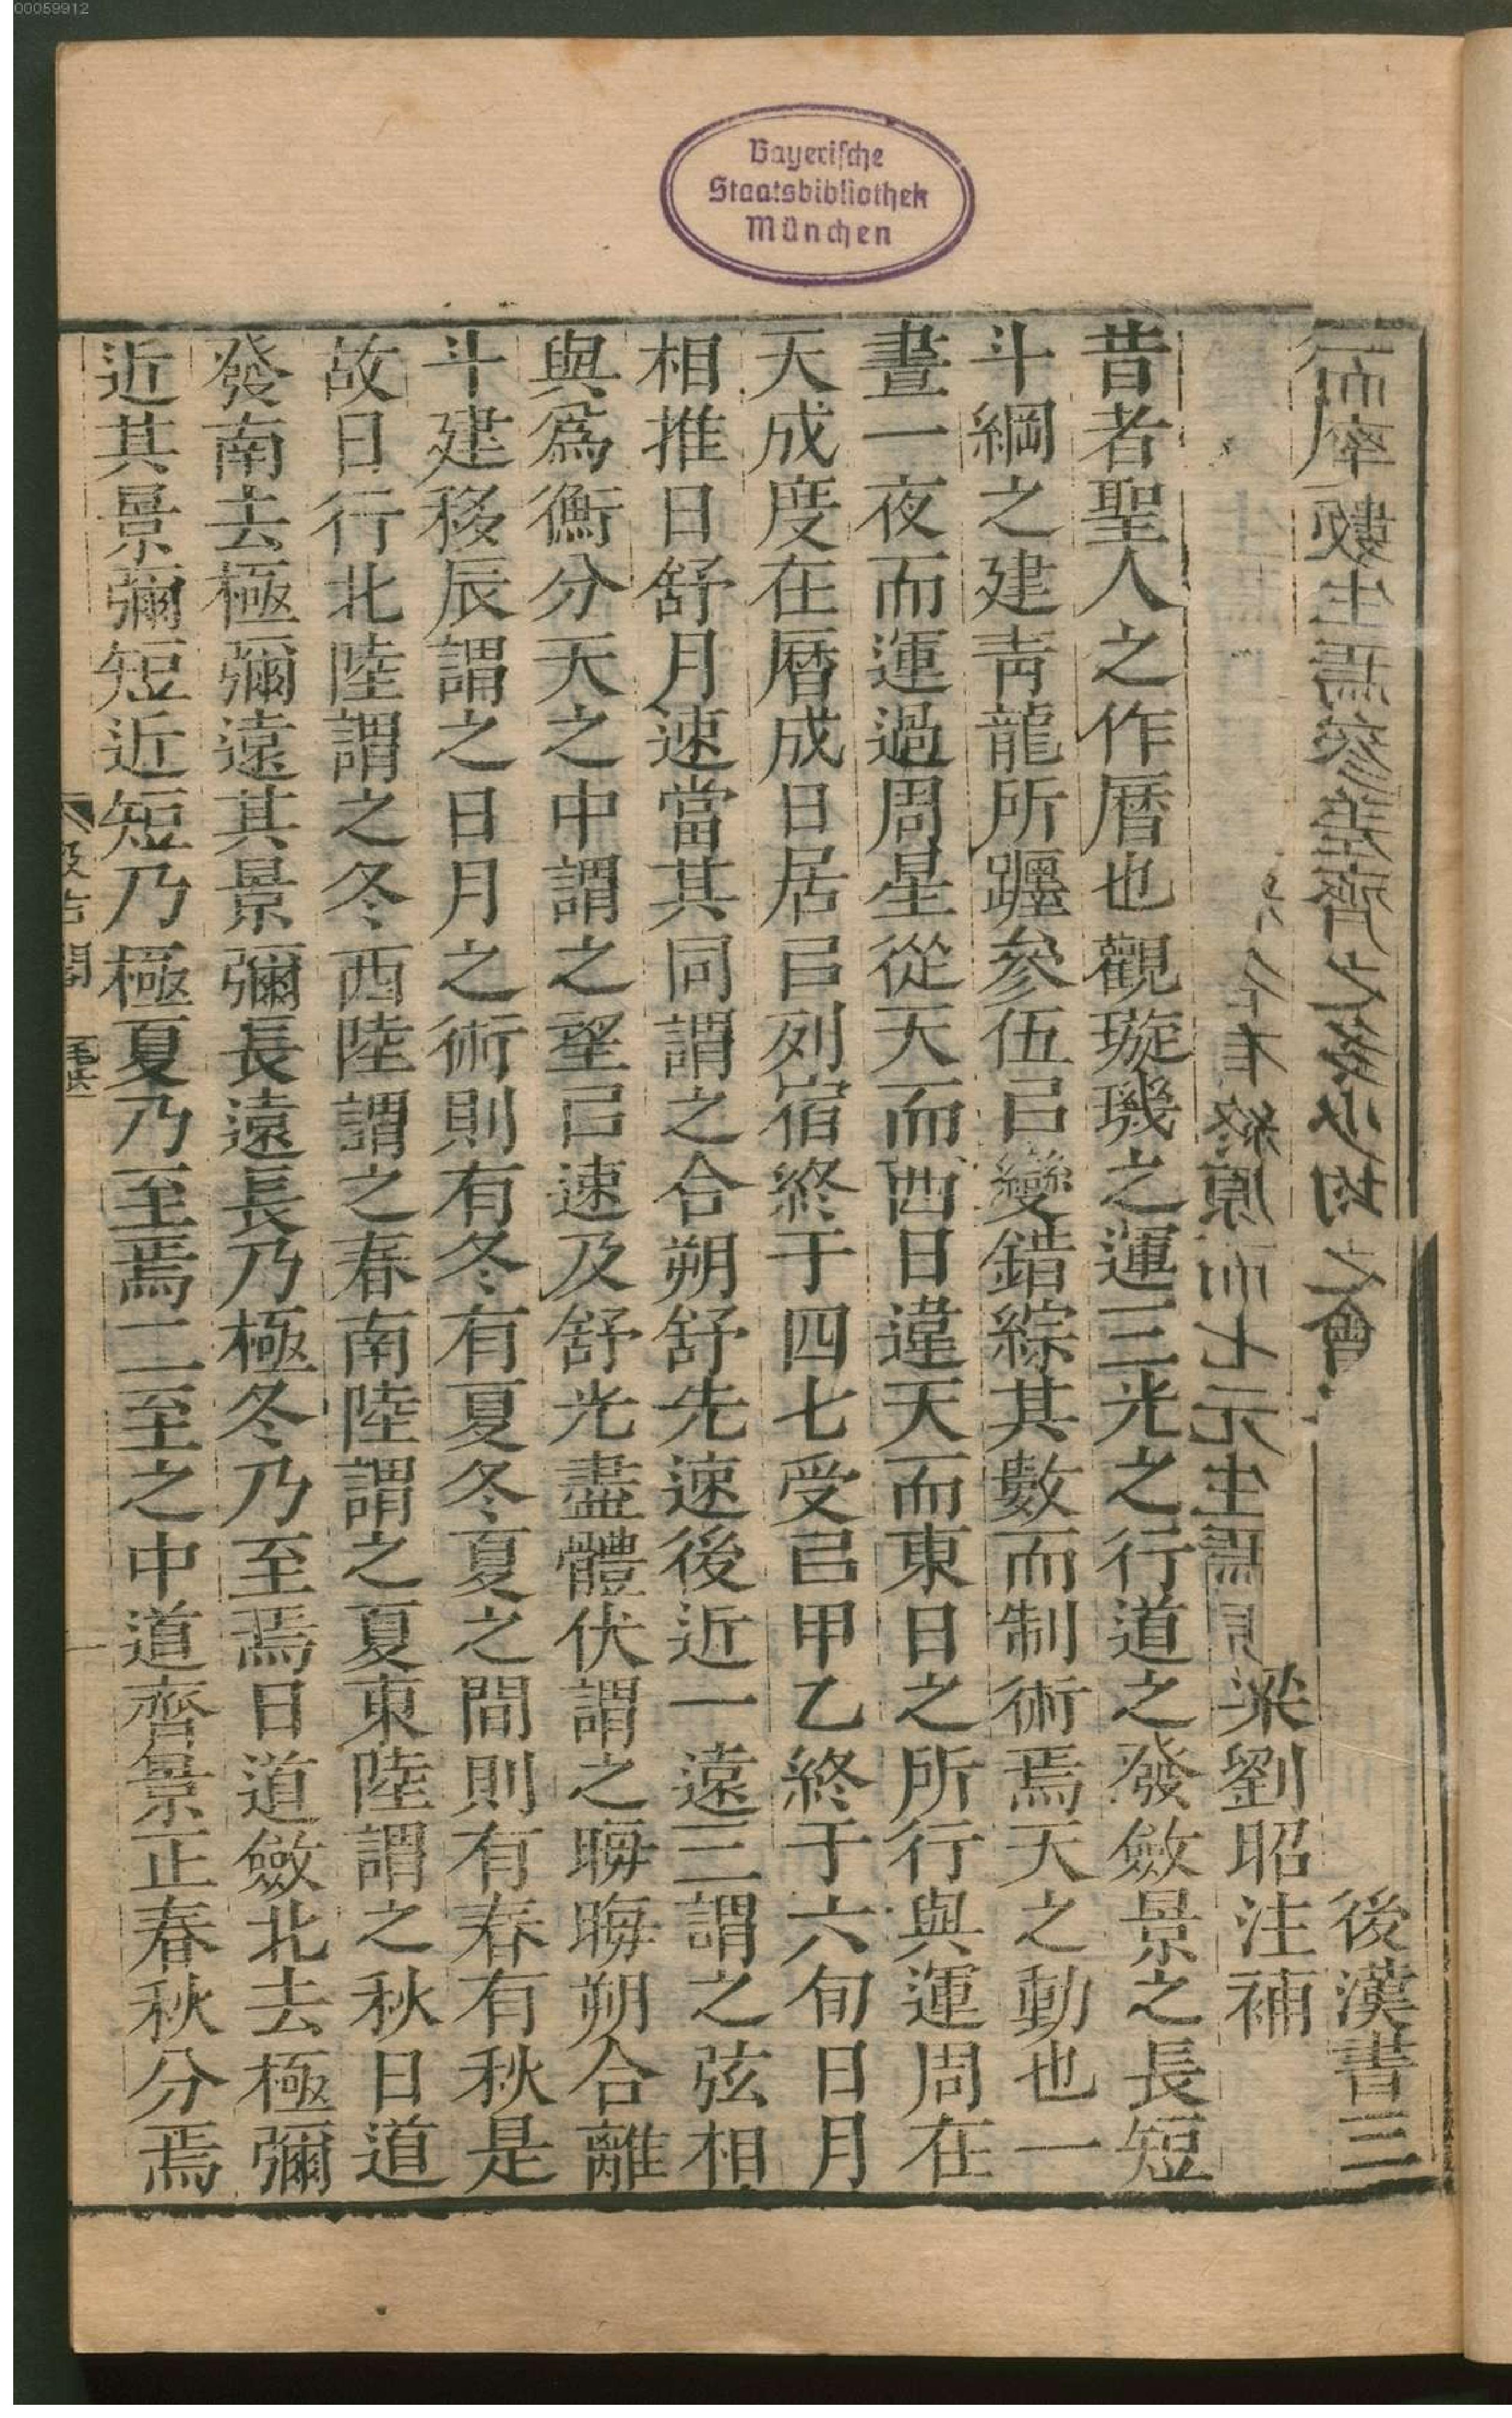 00059912
Bayerische
Staatsbibliothek
München
後漢書三
梁劉昭注補
昔者聖人之作曆也觀璇璣之運三光之行道之發斂景之長短
斗綱之建靑龍所躔參伍㠯變錯綜其數而制術焉天之動也一
晝一夜而運過周星從天而西日違天而東日之所行與運周在
天成度在曆成日居㠯列宿終于四七受㠯甲乙終于六旬日月
相推日舒月速當其同謂之合朔舒先速後近一遠三謂之弦相
與爲衡分天之中謂之望㠯速及舒光盡體伏謂之晦晦朔合離
斗建移辰謂之日月之術則有冬有夏冬夏之間則有春有秋是
故日行北陸謂之冬西陸謂之春南陸謂之夏東陸謂之秋日道
發南去極彌遠其景彌長遠長乃極冬乃至焉日道斂北去極彌
近其景彌短近短乃極夏乃至焉二至之中道齊景正春秋分焉